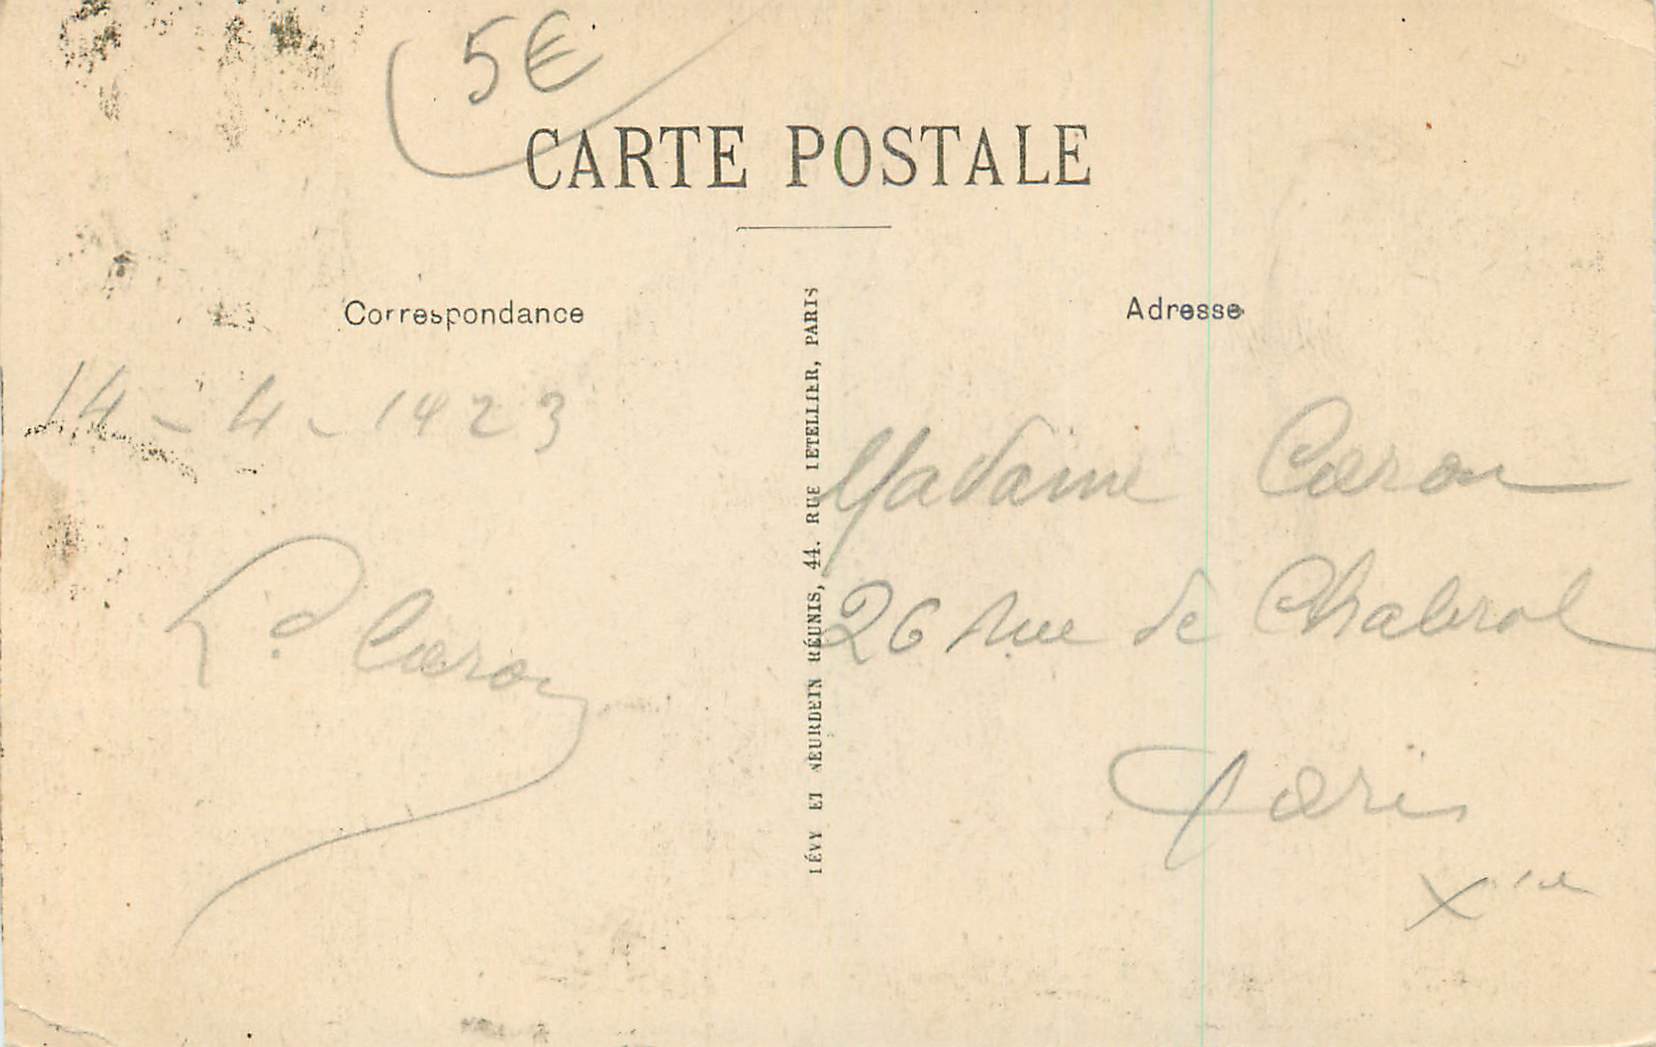 5€
CARTE POSTALE
Correspondance
Adresse
14 - 4 - 1923
Caron
LÉVY ET NEURDEIN RÉUNIS, 44. RUE LETELLIER, PARIS
Madame Caron
26 rue de Chabrol
Paris
Xie